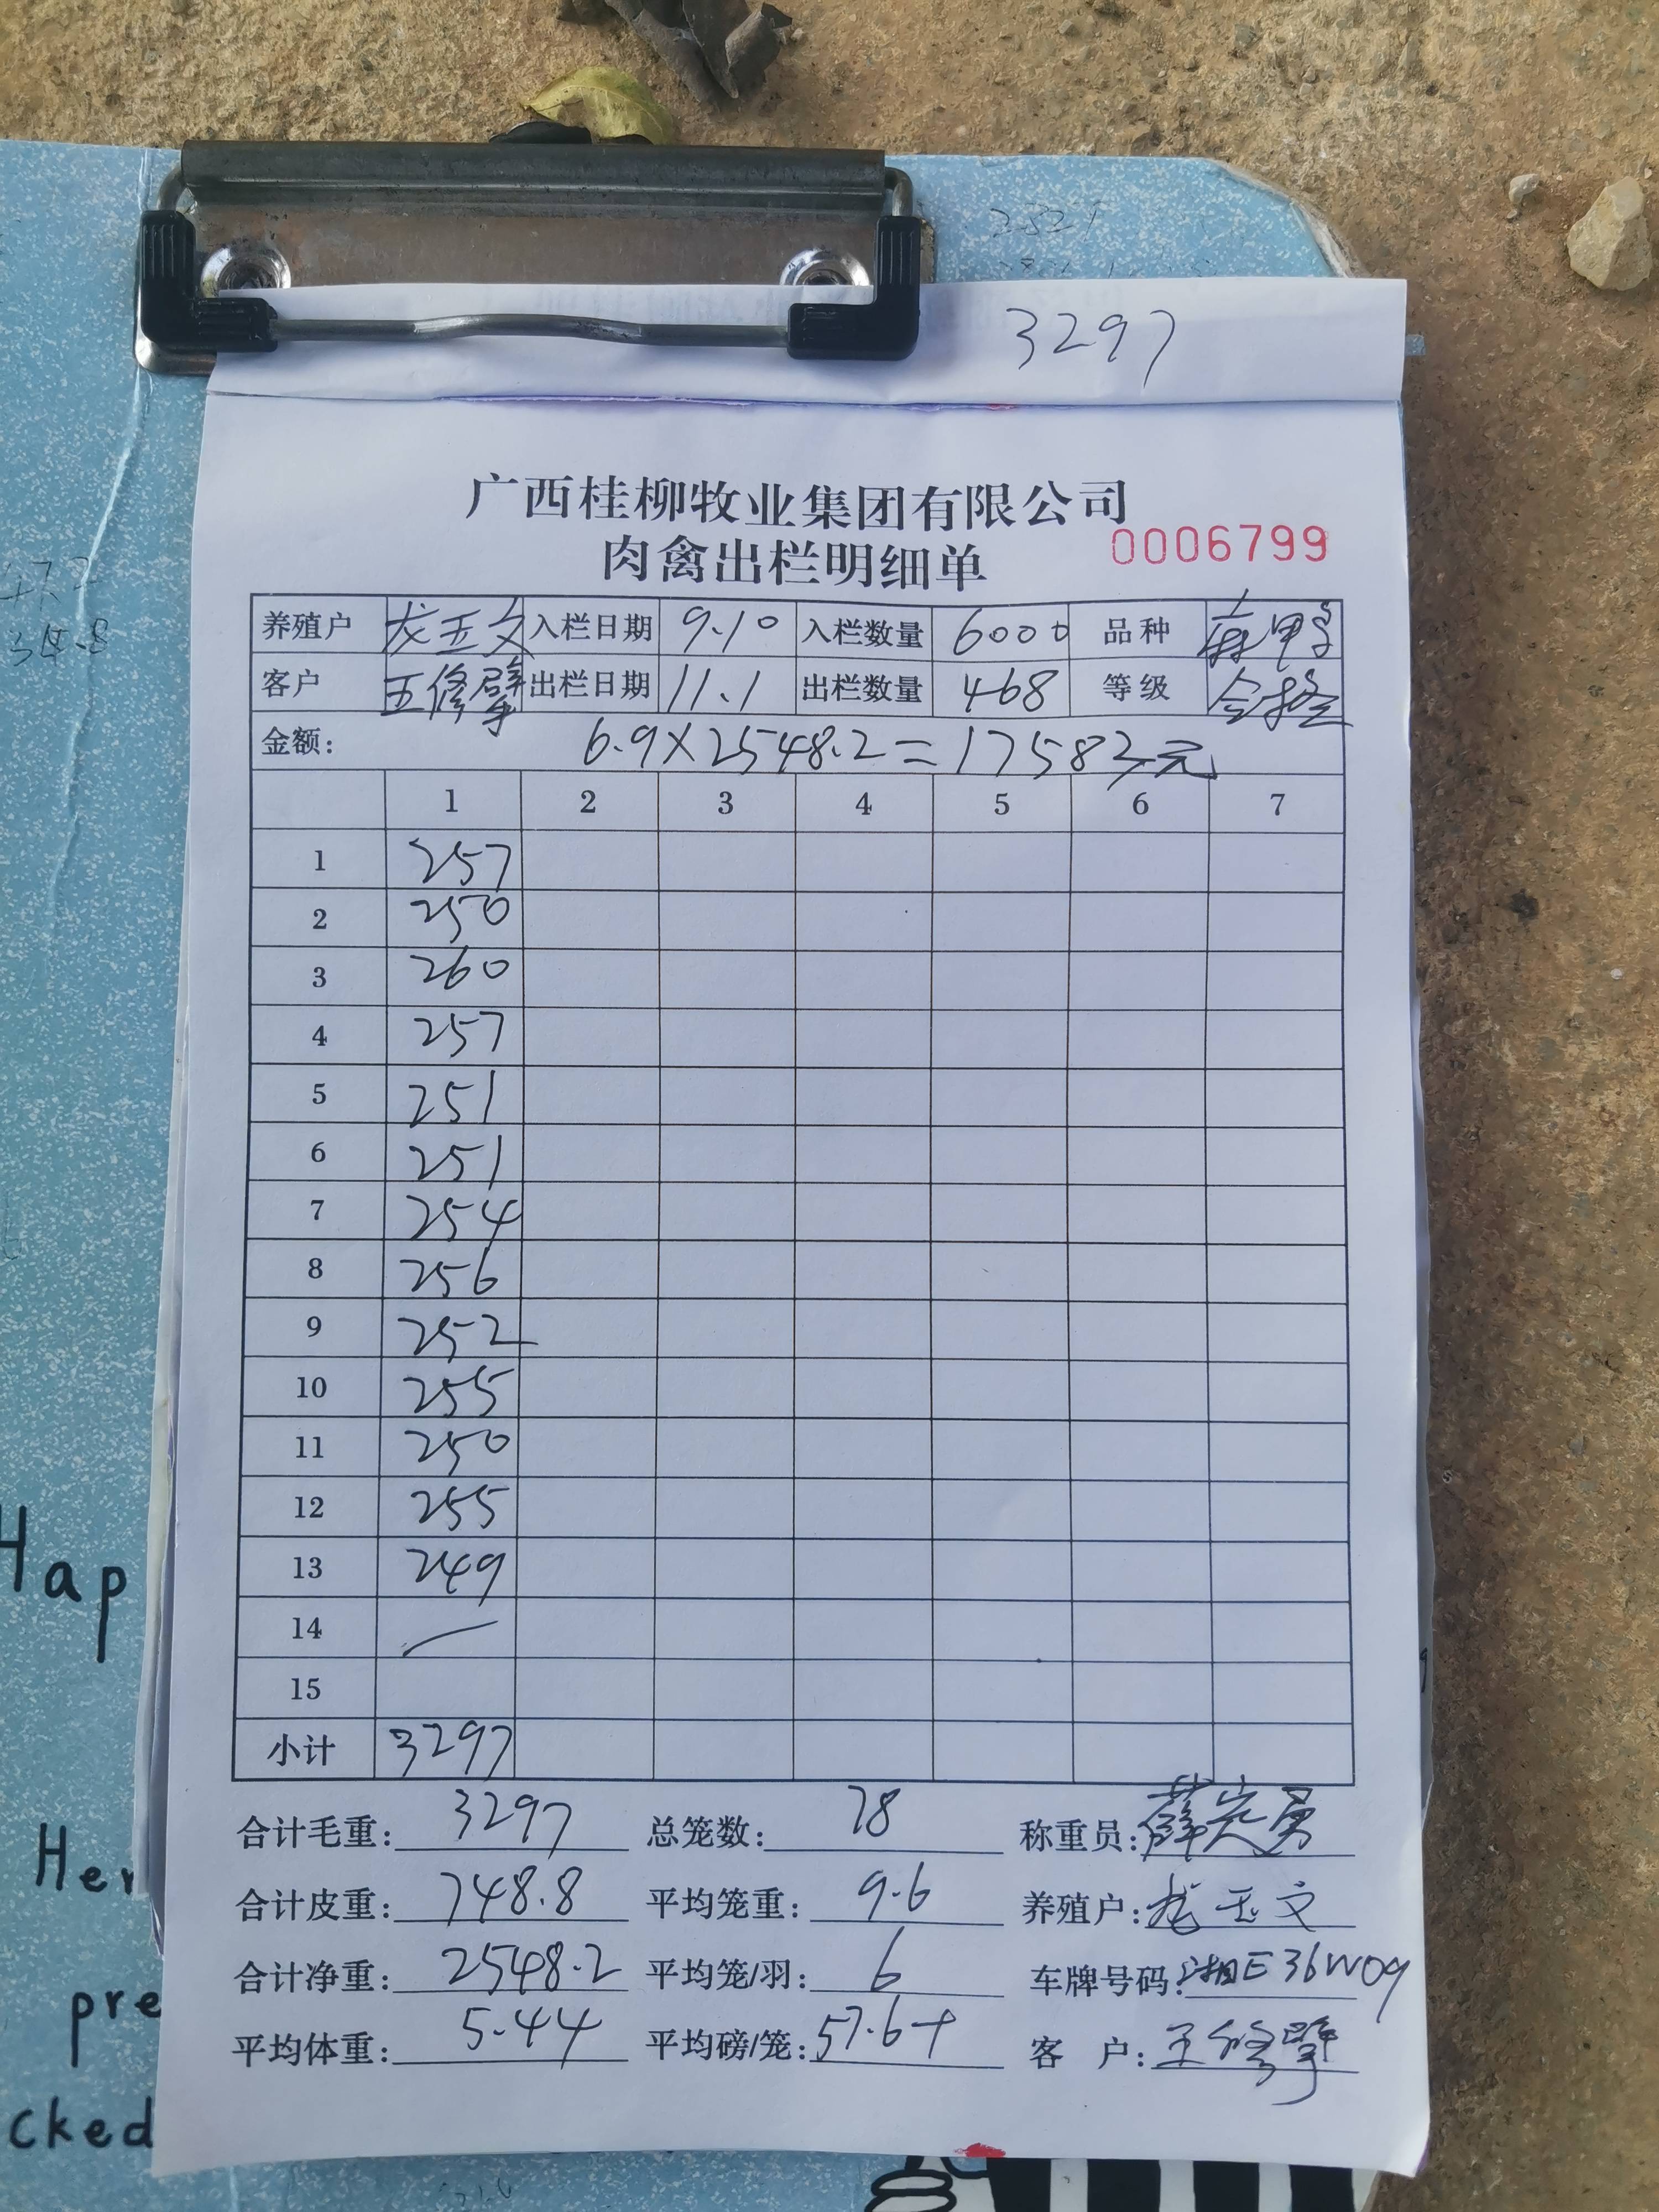 3297
广西桂柳牧业集团有限公司
肉禽出栏明细单 0006799
养殖户 龙玉文 入栏日期 9.10 入栏数量 6000 品种 麻鸭
客户 王修擘 出栏日期 11.1 出栏数量 468 等级 合格
金额: 6.9×2548.2=17583元
1 2 3 4 5 6 7
1 257
2 250
3 260
4 257
5 251
6 251
7 254
8 256
9 252
10 255
11 250
12 255
13 249
14
15
小计 3297
合计毛重: 3297 总笼数: 78 称重员:
合计皮重: 748.8 平均笼重: 9.6 养殖户: 龙玉文
合计净重: 2548.2 平均笼/羽: 6 车牌号码: 湘E36W09
平均体重: 5.44 平均磅/笼: 57.6 客 户: 王修擘
Hap
Her
pre
cked